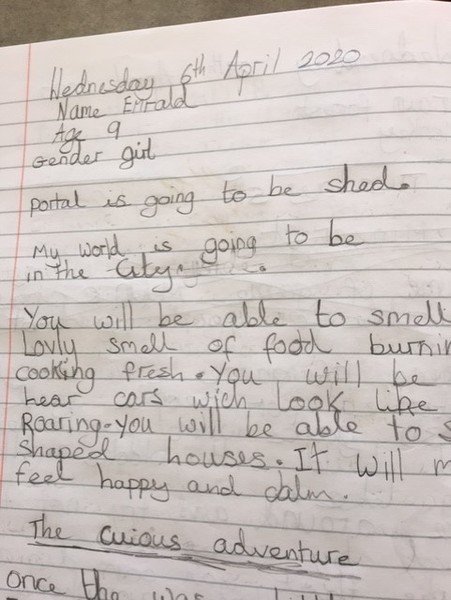 Wednesday 6th April 2020
Name Emrald
Age 9
Gender girl
portal is going to be shed.
My world is going to be
in the City.
You will be able to smell
Lovly smell of food burnin
cooking fresh. You will be
hear cars wich look like
Roaring. You will be able to s
shaped houses. It will m
feel happy and calm.
The cuious adventure
once the was